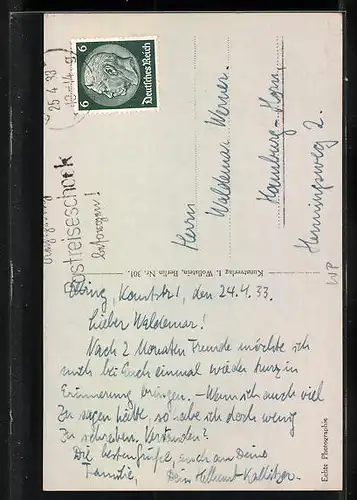 25 4 33
12-14
6 6
Deutsches Reich
Postreisescheck
besorgen!
Herrn
Waldemar Werner.
Hamburg-Horn.
Hermingsweg 2.
Kunstverlag I. Wollstein, Berlin Nr. 301.
WP
Elbing, den 24.4.33.
Lieber Waldemar!
Nach 2 Monaten Freude möchte ich
mich bei Euch einmal wieder kurz in
Erinnerung bringen. - Wenn ich auch viel
zu sagen hätte, so habe ich doch wenig
zu schreiben. Verstanden?
Die besten Grüße, auch an Deine
Familie, Dein Hellmut
Echte Photographie